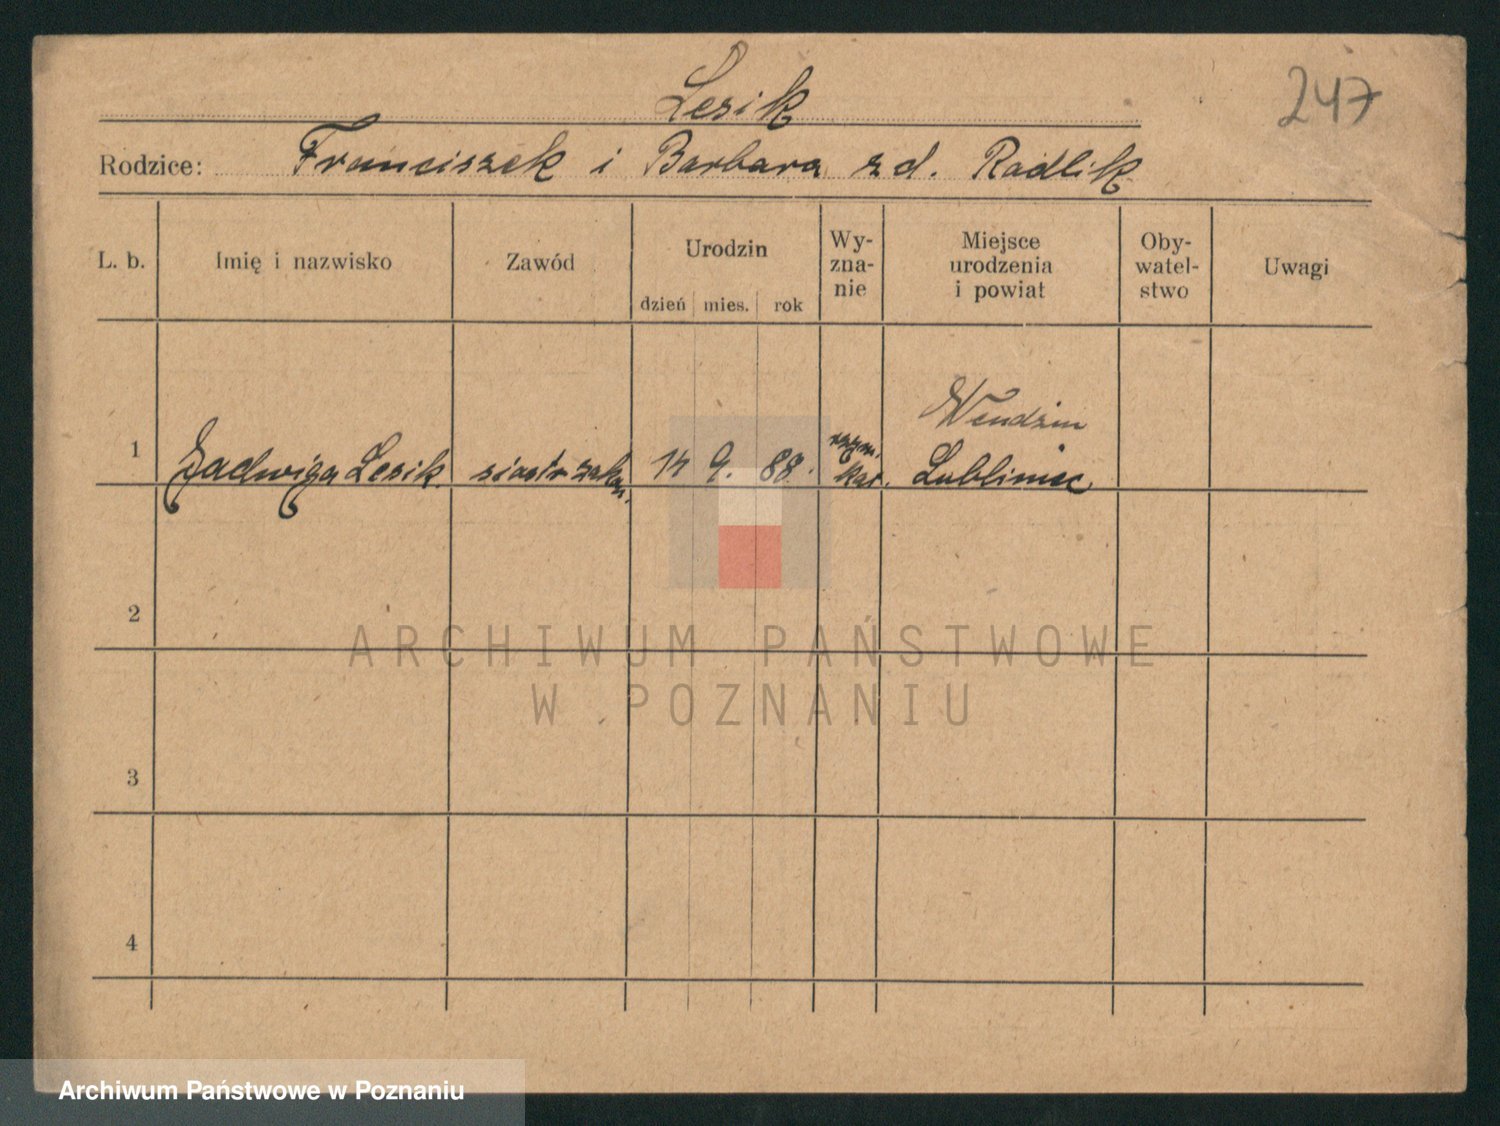 Lesik
247
Rodzice: Franciszek i Barbara z d. Radlik
L. b.
Imię i nazwisko
Zawód
Urodzin
dzień mies. rok
Wy-
zna-
nie
Miejsce
urodzenia
i powiat
Oby-
watel-
stwo
Uwagi
1
Jadwiga Lesik
siostr zakon.
14 9. 88.
rzym.
kat.
Wendzin
Lubliniec
2
3
4
ARCHIWUM PAŃSTWOWE
W POZNANIU
Archiwum Państwowe w Poznaniu